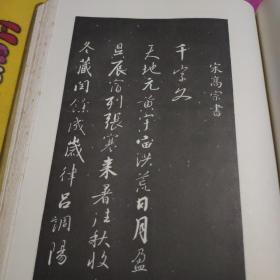 宋高宗書
千字文
天地元黃宇宙洪荒日月盈
昃辰宿列張寒来暑往秋收
冬藏閏餘成歲律呂調陽